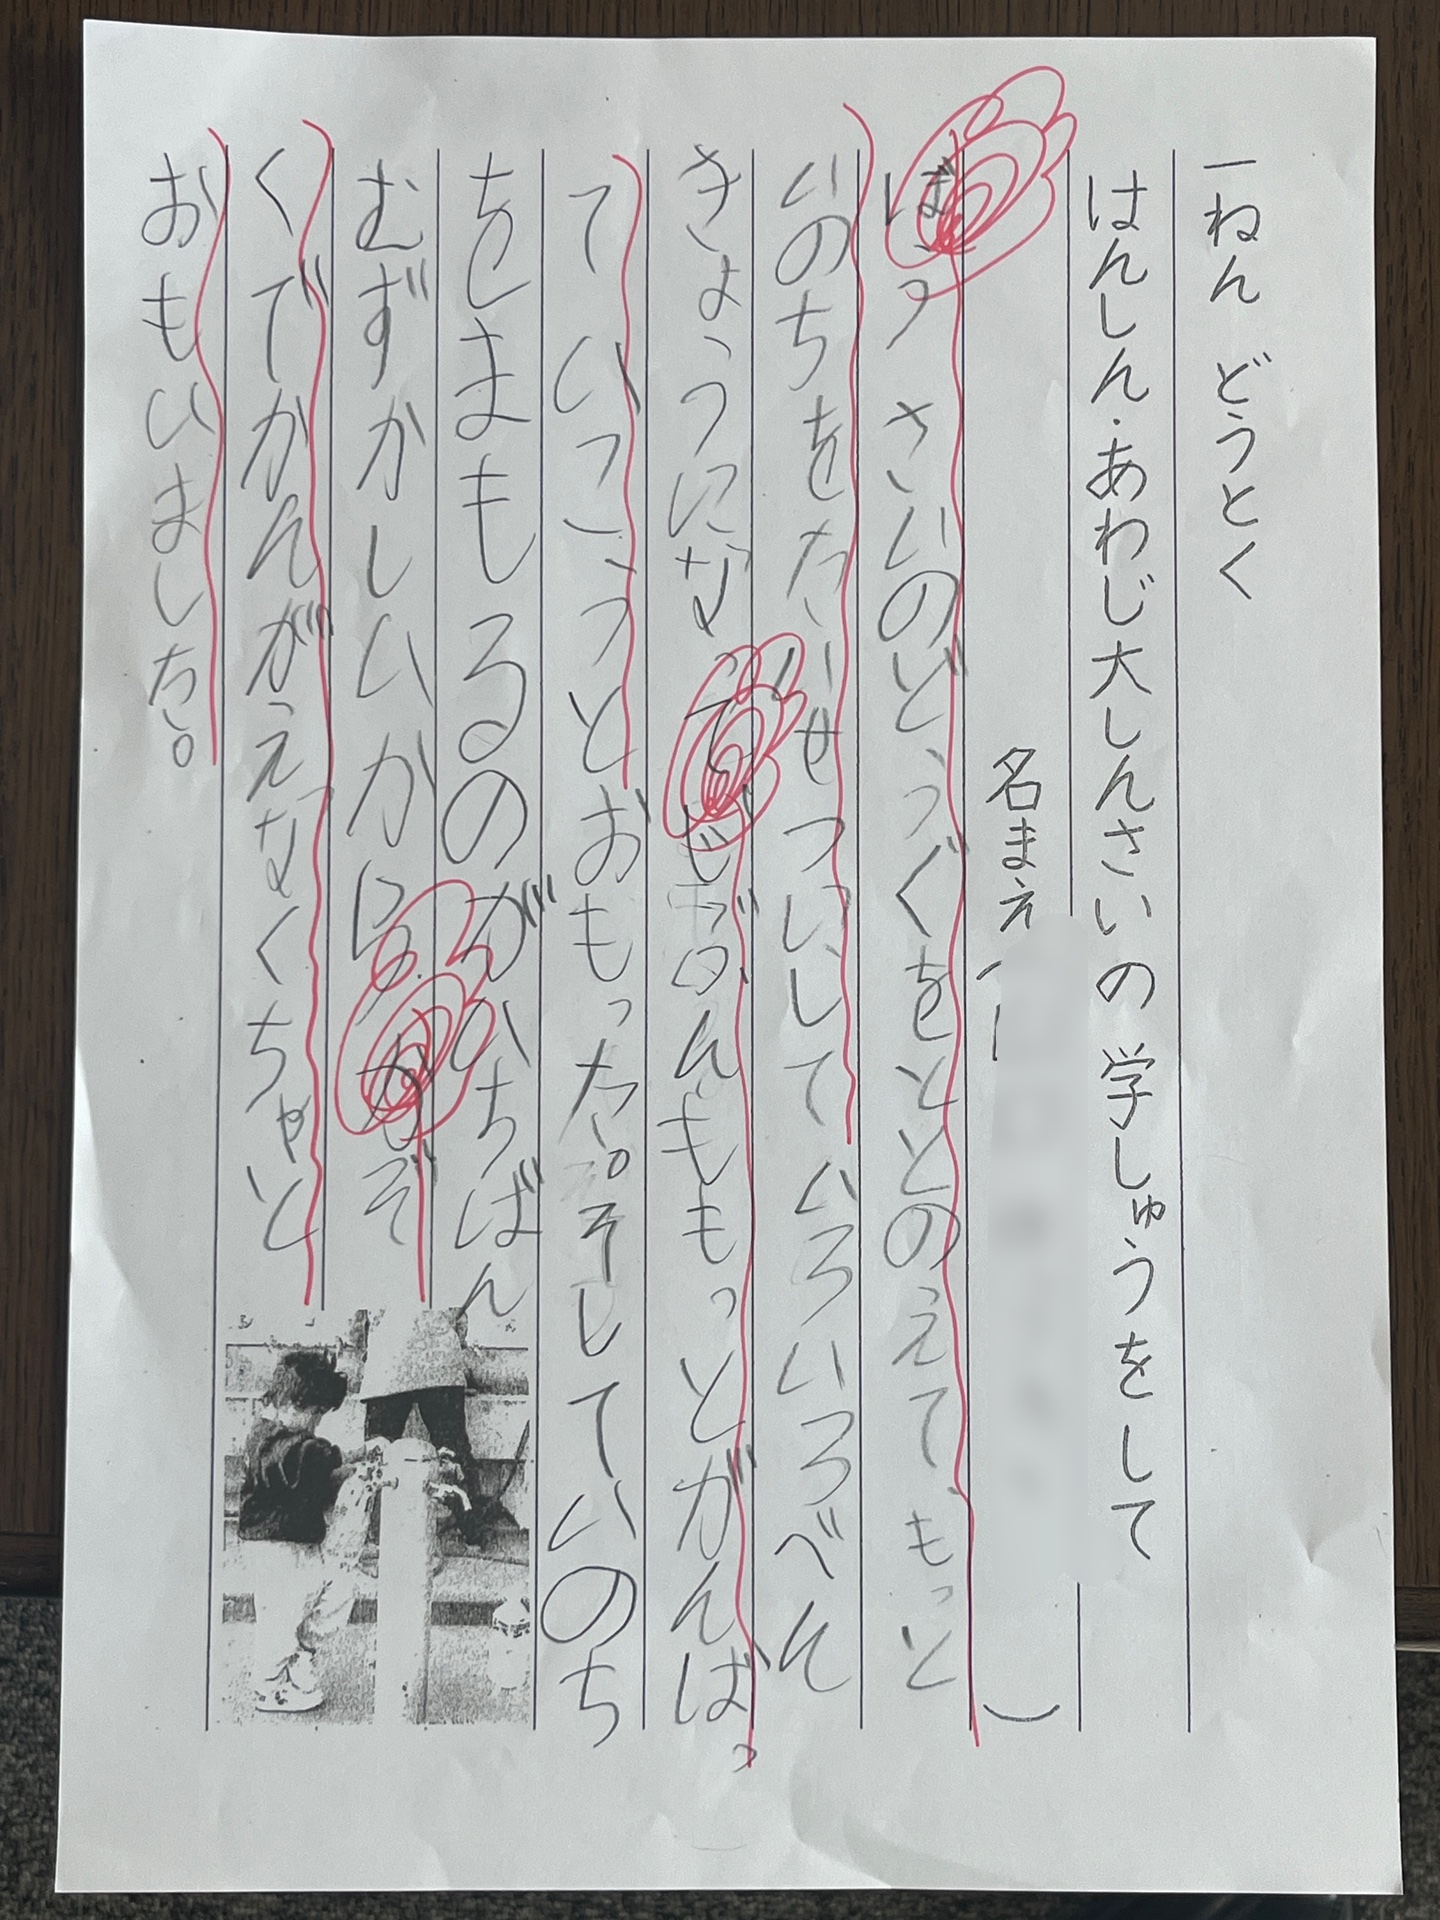 一ねん どうとく
はんしん・あわじ大しんさいの学しゅうをして
名まえ( )
ぼうさいのどうぐをととのえて、もっと
いのちをたいせついしていろいろべん
きょうになってじぶんももっとがんばっ
ていっこうとおもった。そしていのち
をまもるのがいちばん
むずかしいからかぞ
くでかんがえなくちゃと
おもいました。